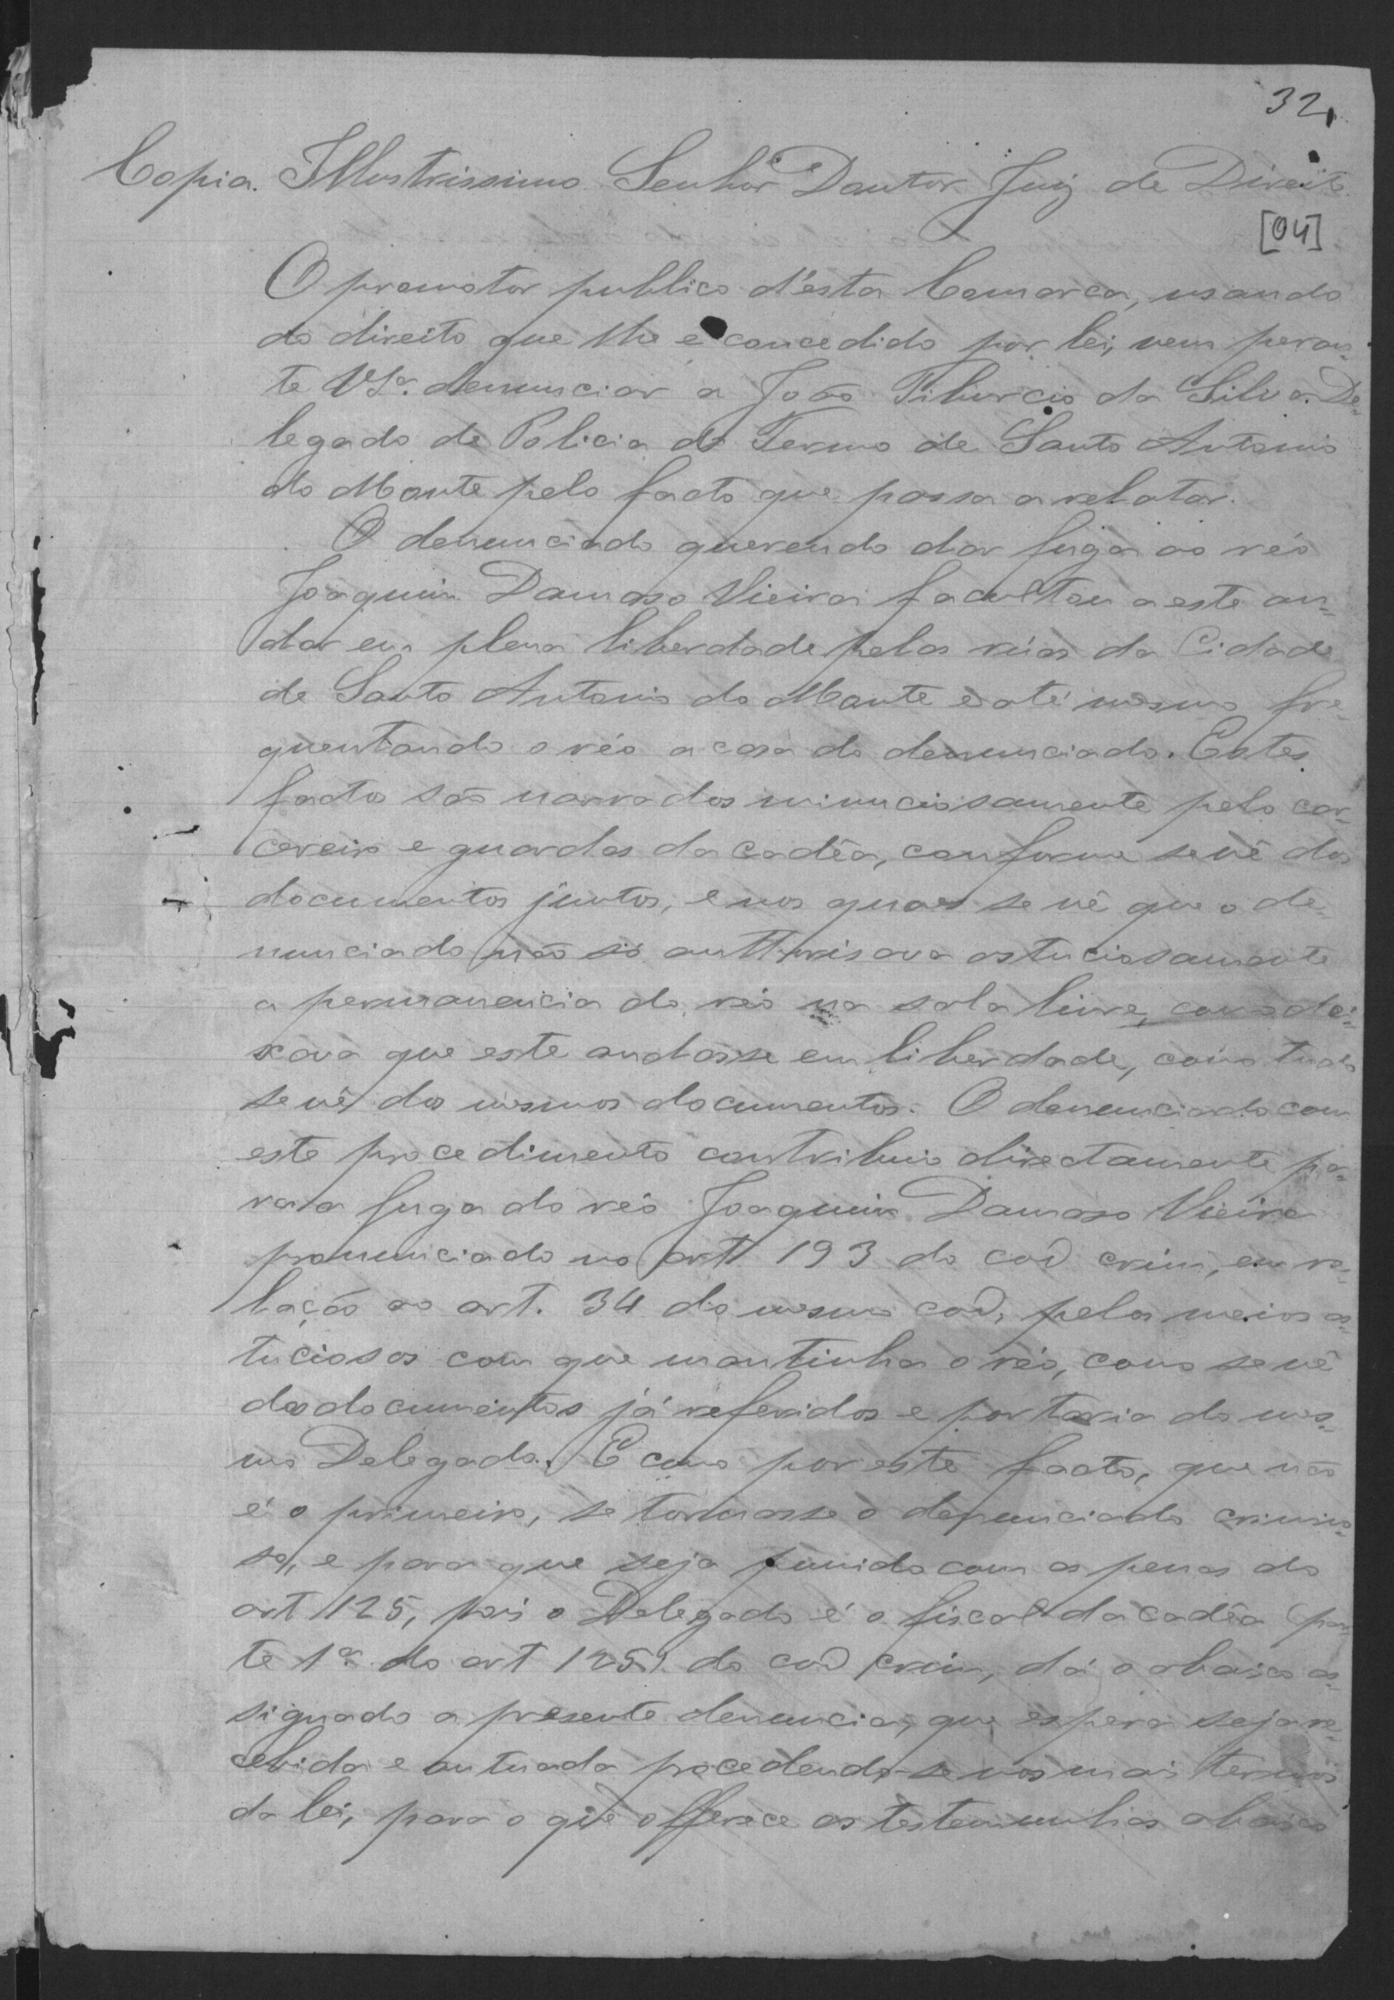 32,
Copia. Illustrissimo Senhor Doutor Juiz de Direito.
[04]
O promotor publico d'esta Comarca, usando
do direito que lhe é concedido por lei, vem peran-
te VSª. denunciar a João Tiburcio da Silva. De-
legado de Policia do Termo de Santo Antonio
do Monte pelo facto que passa a relatar.
O denunciado querendo dar fuga ao réo
Joaquim Damaso Vieira facultou a este an-
dar em plena liberdade pelas rúas da Cidade
de Santo Antonio do Monte e até mesmo fre-
quentando o réo a casa do denunciado. Estes
facto são narrados minuciosamente pelo car-
cereiro e guardas da cadêa, conforme se vê dos
documentos juntos, e nos quaes se vê que o de-
nunciado não só authorisava astuciosamente
a permanencia do réo na sala livre, como dei-
xava que este andasse em liberdade, como tudo
se vê dos mesmos documentos. O denunciado com
este procedimento contribuio directamente pa-
ra a fuga do réo Joaquim Damaso Vieira
pronunciado no art 193 do cod crim, em re-
lação ao art. 34 do mesmo cod, pelos meios as-
tuciosos com que mantinha o réo, como se vê
dos documentos já referidos e portaria do mes-
mo Delegado. E como por este facto, que não
é o primeiro, se tornasse o denunciado crimino-
so, e para que seja punido com as penas do
art 125, pois o Delegado é o fiscal da cadêa (par-
te 1ª do art 125). do cod crim, dá o abaixo as-
signado a presente denuncia, que espera seja re-
cebida e autuada procedendo-se nos mais termos
da lei, para o que offerece as testemunhas abaixo